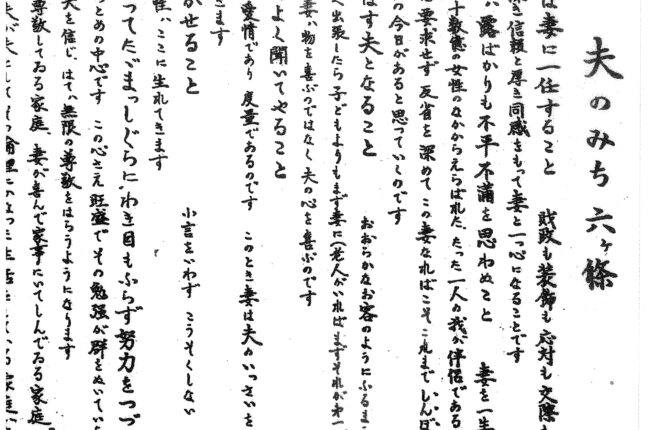 夫のみち六ヶ條
は妻に一任すること　財政も装飾も応対も交際も
き信頼と厚き同感をもって妻と一つ心になることです
露ばかりも不平不満を思わぬこと　妻を一生
十数億の女性のなかからえらばれた、たった一人の我が伴侶である
要求せず反省を深めてこの妻なればこそこれまでしんぼ
の今日があると思っていくのです
はす夫となること　おおらかなお客のようにふるま
へ出張したら子どもよりもまず妻に(老人がいればまずそれが第一
妻は物を喜ぶのではなく夫の心を喜ぶのです
よく聞いてやること
愛情であり度量であるのです　このとき妻は夫のいっさいを
きます
がせること　小言をいわず　こうそくしない
性がここに生れてきます
ってたゞまっしぐらに、わき目もふらず努力をつゞ
とめの中心です　この心さえ旺盛でその勉強が群をぬいてい
夫を信じ、はては無限の尊敬をはろうようになります
尊敬してゐる家庭、妻が喜んで家事にいそしんでゐる家庭
倫理にかなった生活をしている家庭